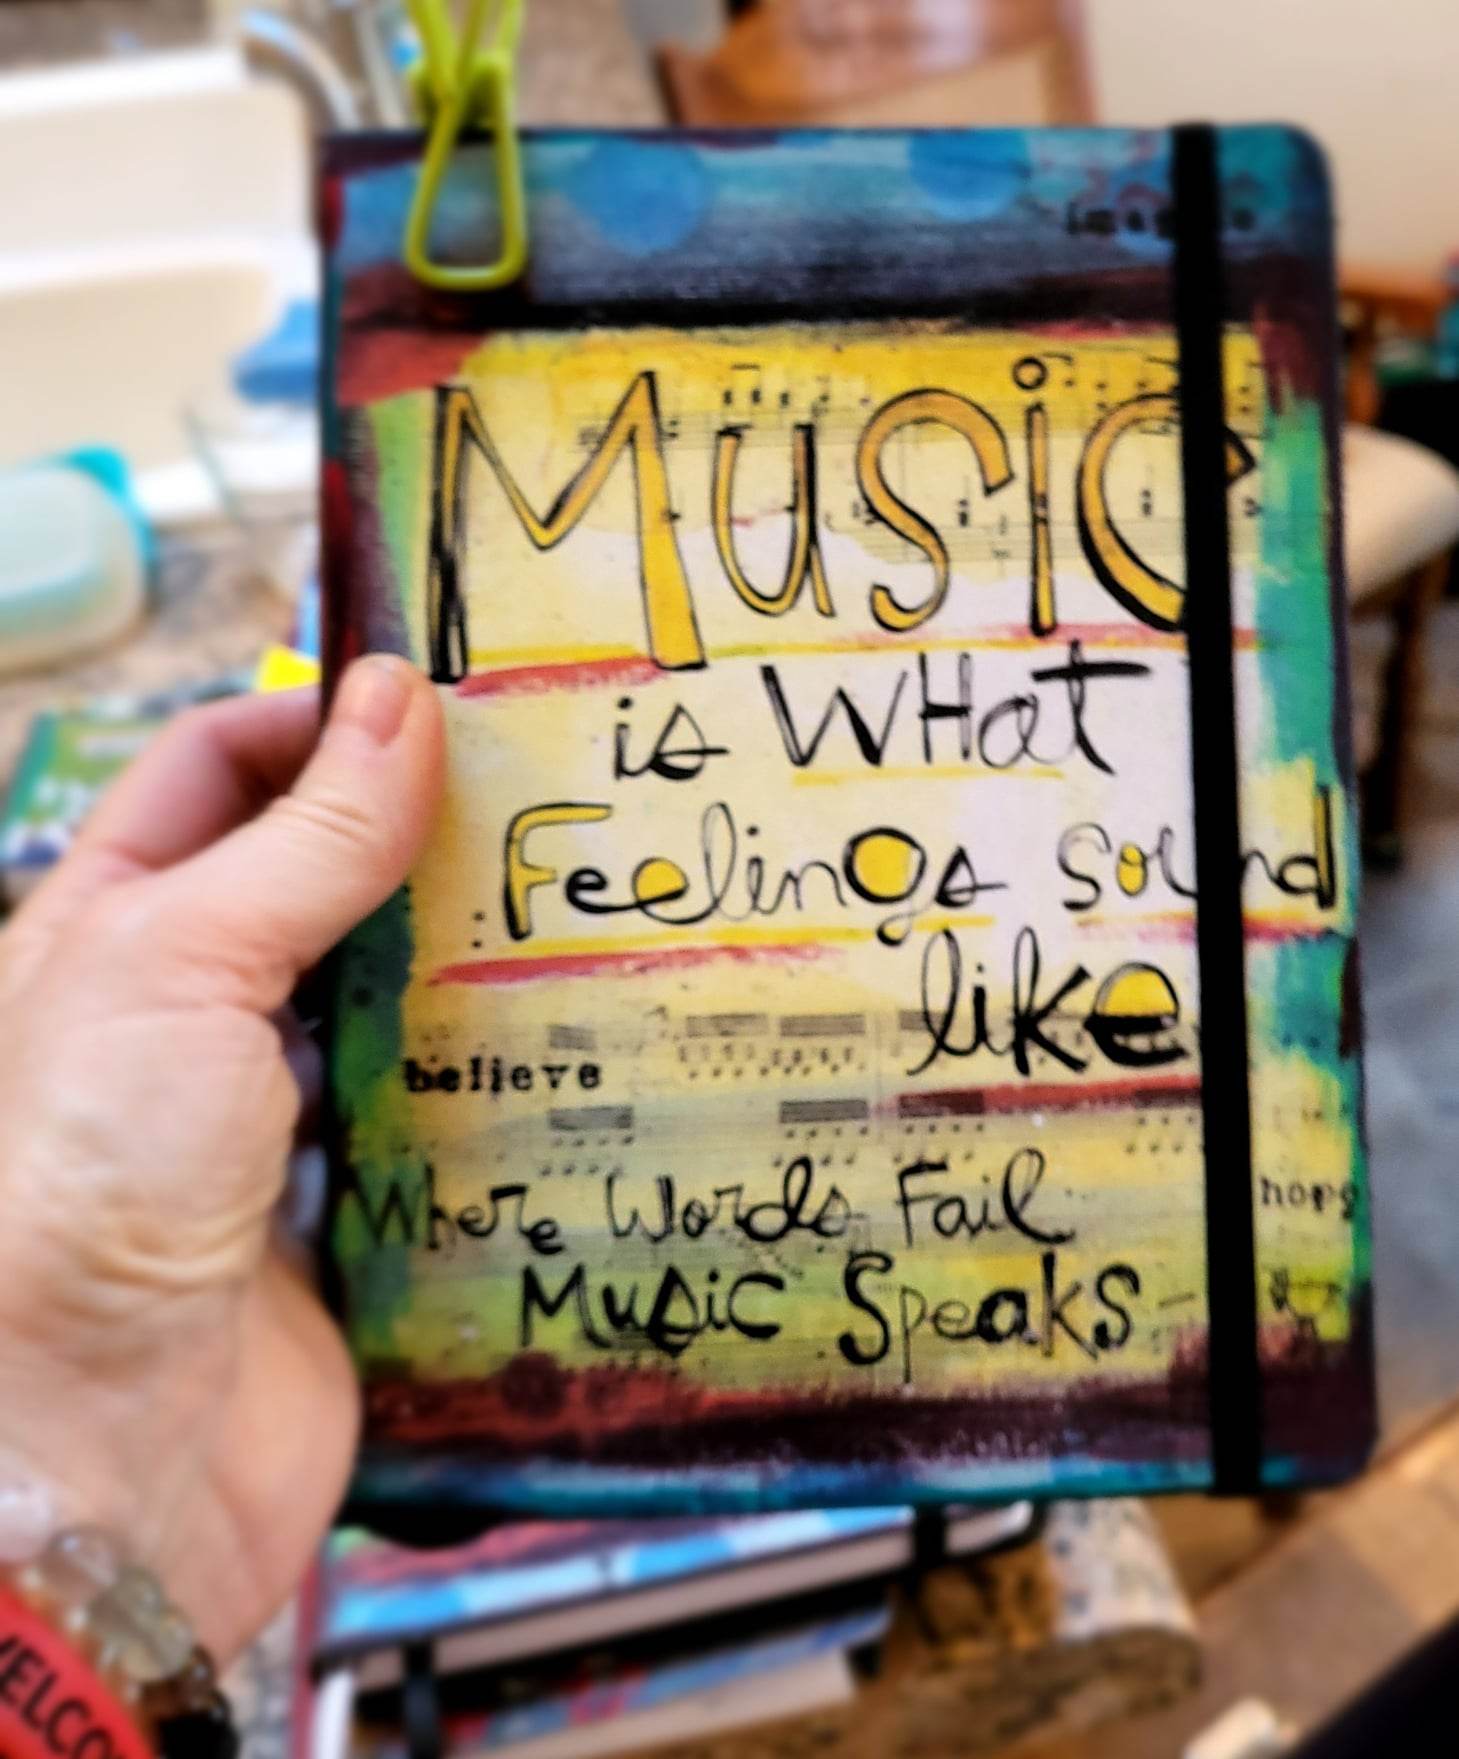 Music
is WHat
Feelings sound
like
believe
Where Words Fail
hope
Music Speaks